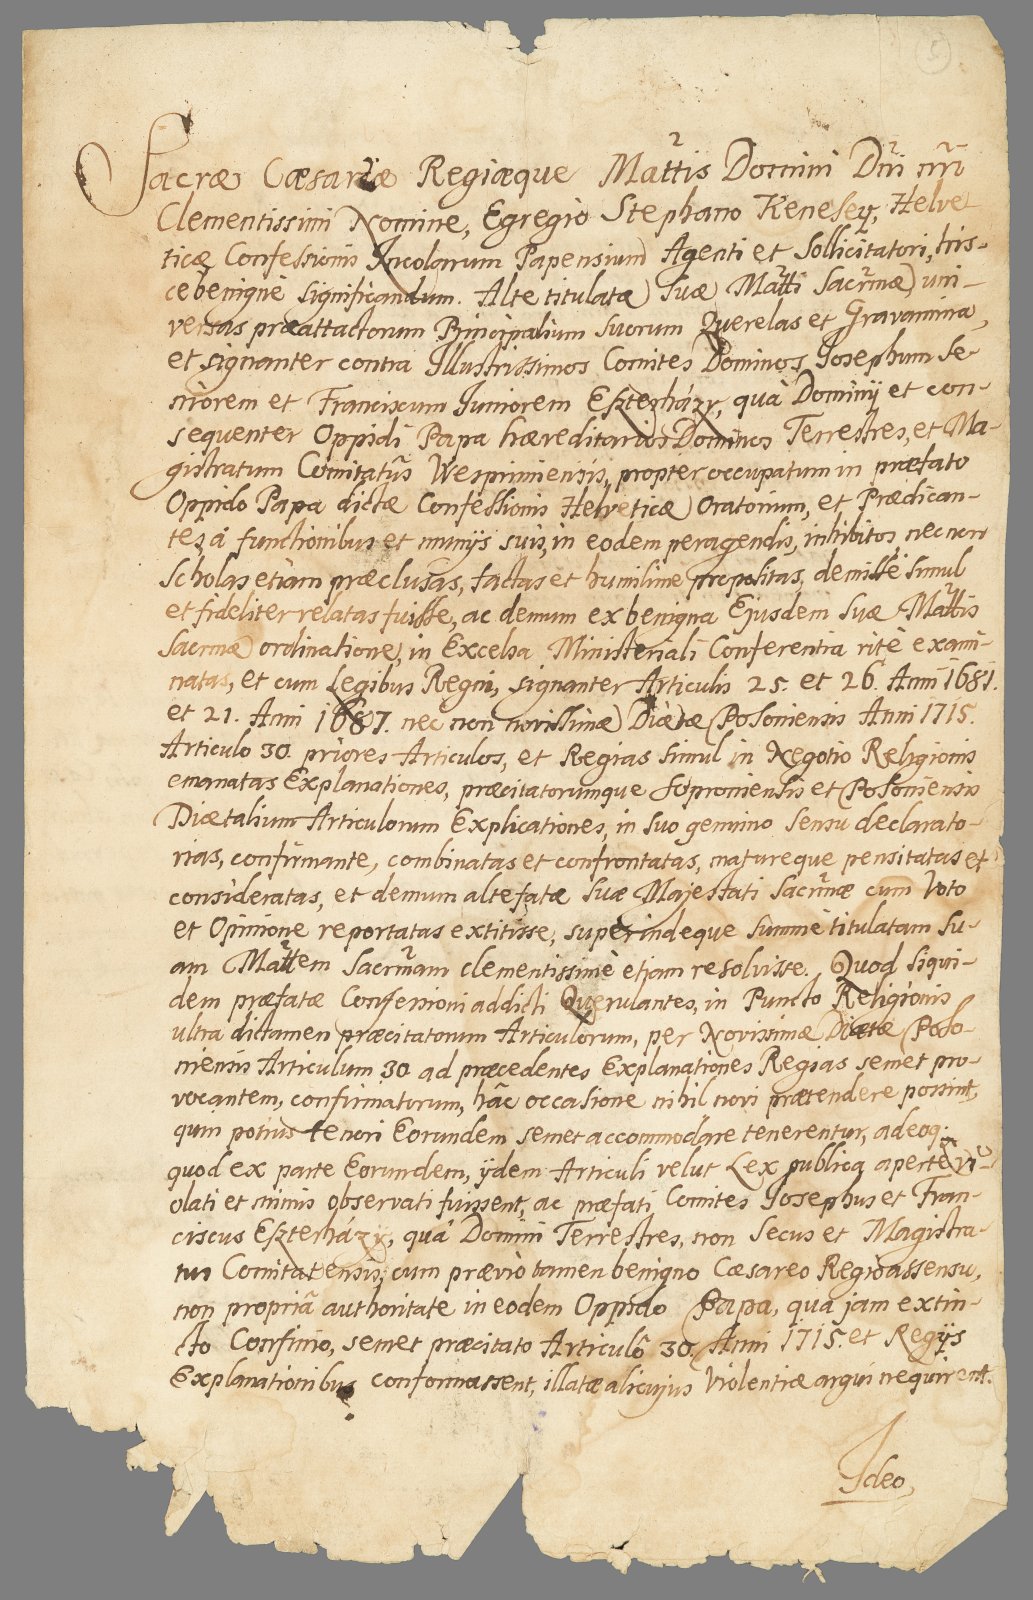 5
Sacræ Cæsareæ Regiæque Mattis Domini Dni nri
Clementissimi Nomine, Egregio Stephano Kenesey, Helve
ticæ Confessionis Incolarum Papensium Agenti et Sollicitatori, his-
ce benigne significandum. Alte titulatæ Suæ Matti Sacrmæ uni-
versas præattactorum Principalium suorum Querelas et Gravamina,
et signanter contra Illustrissimos Comites Dominos Josephum Se-
niorem et Franciscum Juniorem Eszterházy, quà Dominij et con-
sequenter Oppidi Papa hæreditarios Dominos Terrestres, et Ma-
gistratum Comitatûs Wesprimiensis, propter occupatum in præfato
Oppido Papa dictæ Confessionis Helveticæ Oratorium, et Prædican-
tes à functionibus et munijs suis, in eodem peragendis, inhibitos nec non
Scholas etiam præclusas, factas et humilime propositas, demissè simul
et fideliter relatas fuisse, ac demum ex benigna Ejusdem Suæ Mattis
Sacrmæ ordinatione, in Excelsa Ministeriali Conferentia ritè exami-
natas, et cum Legibus Regni, signanter Articulis 25. et 26. Anni 1681.
et 21. Anni 1687. nec non novissimæ Diætæ Posoniensis Anni 1715.
Articulo 30. priores Articulos, et Regias simul in Negotio Religionis
emanatas Explanationes, præcitatorumque Soproniensis et Posoniensis
Diætalium Articulorum Explicationes, in suo genuino sensu declarato-
rias, confirmante, combinatas et confrontatas, matureque pensitatas et
consideratas, et demum altefatæ Suæ Majestati Sacrmæ cum Voto
et Opinione reportatas extitisse, superindeque summè titulatam Su-
am Mattem Sacrmam clementissimè etiam resolvisse. Quod siqui-
dem præfatæ Confessioni addicti Querulantes, in Puncto Religionis
ultra dictamen præcitatorum Articulorum, per Novissimæ Diætæ Poso-
niensis Articulum 30 ad præcedentes Explanationes Regias semet pro-
vocantem, confirmatorum, hâc occasione nihil novi prætendere possint,
quin potius tenori Eorundem semet accommodare tenerentur, adeoq.
quod ex parte Eorundem, ijdem Articuli velut Lex publica apertè vi-
olati et minus observati fuissent, ac præfati Comites Josephus et Fran-
ciscus Eszterházy, quà Domini Terrestres, non secus et Magistra-
tus Comitatensis, cum prævio tamen benigno Cæsareo Regio assensu,
non propriâ authoritate in eodem Oppido Papa, quà jam extin-
cto Confinio, semet præcitato Articulô 30. Anni 1715. et Regijs
Explanationibus conformassent, illatæ alicujus Violentiæ argui nequirent.
Ideo,